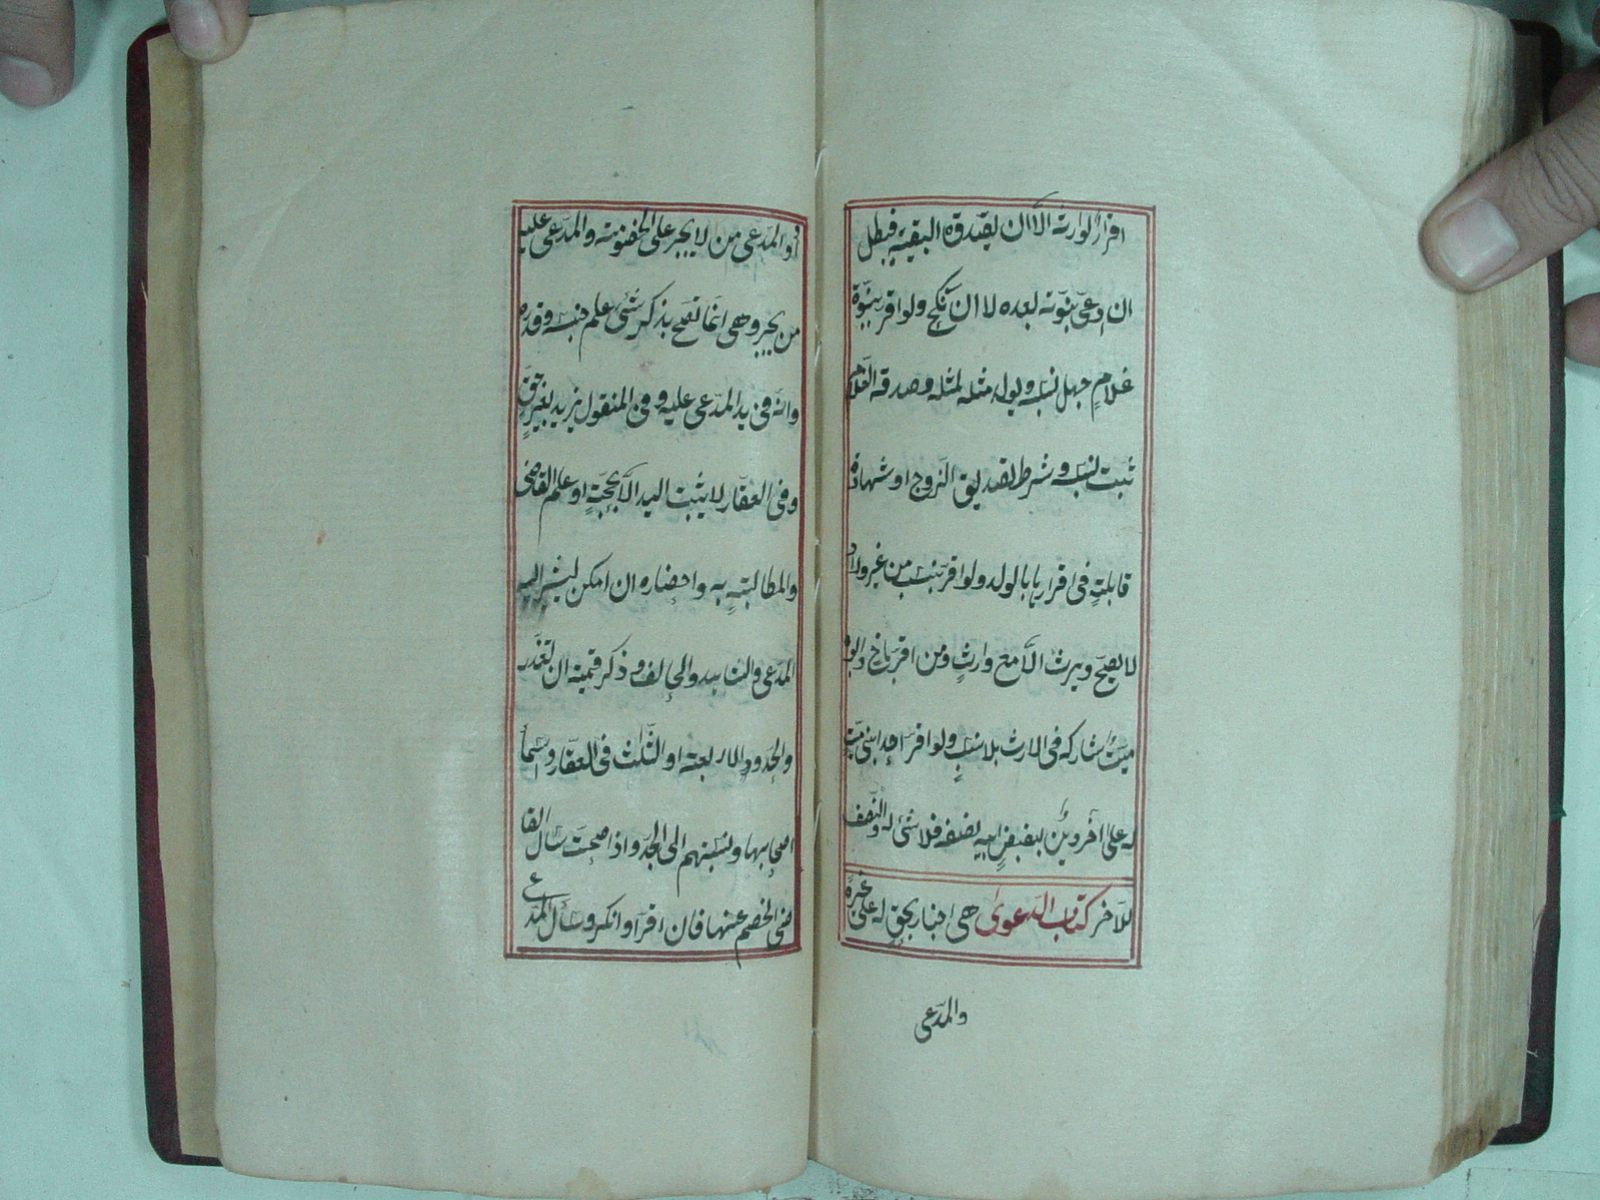 اقرار لوارثه الا ان يصدقه البقية فيبطل
ان ادعى بنوته بعده لا ان نكح ولو اقر ببنوة
غلام جهل نسبه ويولد مثله لمثله وصدقه الغلام
ثبت نسبه وشرط تصديق الزوج او شهادة
قابلة فى اقرارها بالولد ولو اقر بنسب من غير ولاد
لا يصح ويرث الا مع وارث ومن اقر باخ وابوه
ميت شاركه فى الارث بلا نسب ولو اقر احد ابنى ميت
له على اخر دين بقبض ابيه نصفه فلا شئ له والنصف
للآخر كتاب الدعوى هى اخبار بحق له على غيره
والمدعى
والمدعى من لا يجبر على الخصومة والمدعى عليه
من يجبر وهى انما تصح بذكر شئ علم جنسه وقدره
وانه فى يد المدعى عليه وفى المنقول يزيد بغير حق
وفى العقار لا يثبت اليد الا بحجة او علم القاضى
والمطالبة به واحضاره ان امكن ليشير اليه
المدعى والشاهد والحالف وذكر قيمته ان تعذر
والحدود الاربعة او الثلث فى العقار واسماء
اصحابها ونسبتهم الى الجد واذا صحت سأل القا
ضى الخصم عنها فان اقر او انكر وسأل المدعى